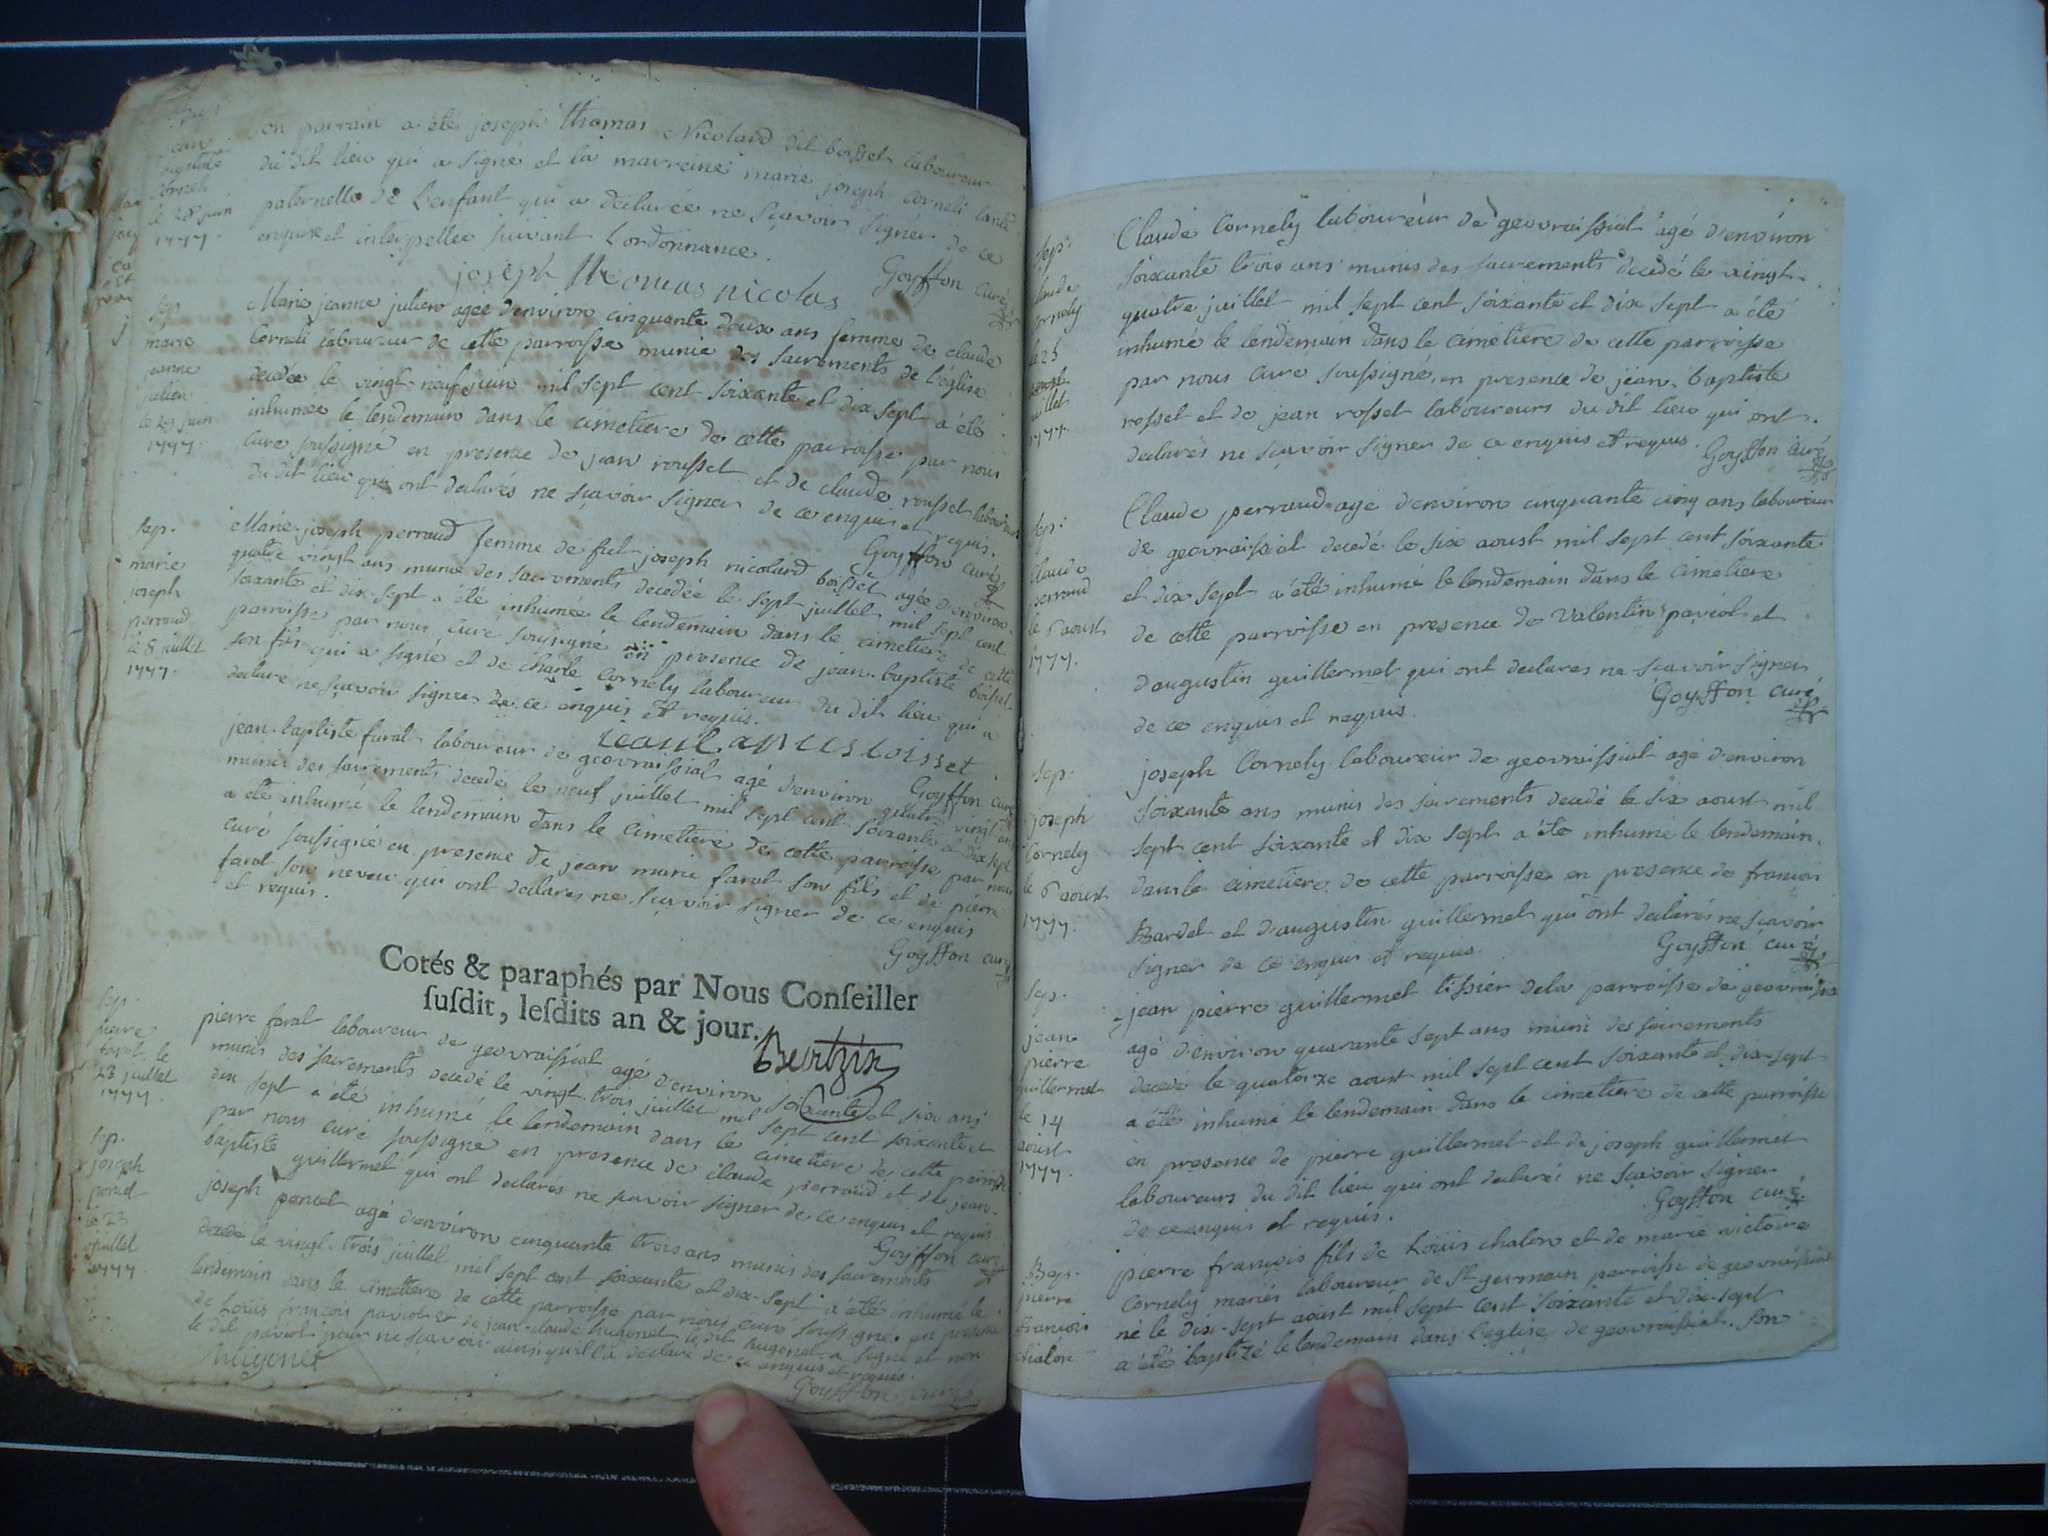 Bap:
jean
baptiste
Corneli
le 28 juin
1777.
son parrain a été joseph thomas Nicolard dit boisset laboureur
du dit lieu qui a signé et la marreine marie joseph Corneli tante
paternelle de l'enfant qui a déclarée ne sçavoir signer de ce
enquise et interpellee suivant l'ordonnance.
Goyffon curé
joseph thomas nicolas
Sep.
marie
jeanne
julien
le 29 juin
1777.
Marie jeanne julien agée d'environ cinquante deux ans femme de claude
Corneli laboureur de cette parroisse munie des sacrements de l'église
decedée le vingt-neuf juin mil sept cent soixante et dix sept a été
inhumée le lendemain dans le cimetiere de cette parroisse par nous
curé soussigné en presence de jean rousset et de claude rousset laboureurs
du dit lieu qui ont declarés ne sçavoir signer de ce enquis et requis.
Goyffon curé
Sep.
marie
joseph
perraud
le 8 juillet
1777.
Marie-joseph perraud femme de fut joseph nicolard boisset agée d'environ
quatre vingt ans munie des sacrements decedée le sept juillet mil sept cent
soixante et dix-sept a été inhumée le lendemain dans le cimetiere de cette
parroisse par nous curé soussigné en presence de jean-baptiste boisset
son fils qui a signé et de charle Cornely laboureur du dit lieu qui a
declaré ne sçavoir signer de ce enquis et requis.
jean baptiste boisset
Goyffon curé
jean-baptiste farat laboureur de geovraissiat agé d'environ quatre vingt ans
munis des sacrements decedé le neuf juillet mil sept cent soixante et dix sept
a été inhumé le lendemain dans le cimetiere de cette parroisse par nous
curé soussigné en presence de jean marie farat son fils et de pierre
farat son neveu qui ont declarés ne sçavoir signer de ce enquis
et requis.
Goyffon curé
Cotés & paraphés par Nous Conseiller
susdit, lesdits an & jour.
Bertzin
Sep.
pierre
farat le
23 juillet
1777.
pierre farat laboureur de geovraissiat agé d'environ soixante et six ans
munis des sacrements decedé le vingt-trois juillet mil sept cent soixante et
dix sept a été inhumé le lendemain dans le cimetiere de cette parroisse
par nous curé soussigné en presence de claude perraud et de jean-
baptiste guillermet qui ont declarés ne sçavoir signer de ce enquis et requis.
Goyffon curé
Sep.
joseph
poncet
le 23
juillet
1777
joseph poncet agé d'environ cinquante trois ans munis des sacrements
decedé le vingt-trois juillet mil sept cent soixante et dix-sept a été inhumé le
lendemain dans le cimetiere de cette parroisse par nous curé soussigné en presence
de Loüis françois paviot et de jean-claude hugonet le dit hugonet a signé et non
le dit paviot pour ne sçavoir ainsi qu'il l'a declaré de ce enquis et requis.
hugonet
Goyffon curé
Sep:
Claude
Cornely
le 25
juillet
1777.
Claude Cornely laboureur de geovraissiat agé d'environ
soixante trois ans munis des sacrements decedé le vingt-
quatre juillet mil sept cent soixante et dix sept a été
inhumé le lendemain dans le cimetiere de cette parroisse
par nous curé soussigné, en presence de jean-baptiste
rosset et de jean rosset laboureurs du dit lieu qui ont
declarés ne sçavoir signer de ce enquis et requis. Goyffon curé
Sep:
Claude
perraud
le 6 aoust
1777.
Claude perraud agé d'environ cinquante cinq ans laboureur
de geovraissiat decedé le six aoust mil sept cent soixante
et dix sept a été inhumé le lendemain dans le cimetiere
de cette parroisse en presence de Valentin paviot et
d'augustin guillermet qui ont declarés ne sçavoir signer
de ce enquis et requis.
Goyffon curé
Sep.
joseph
Cornely
le 6 aoust
1777.
joseph Cornely laboureur de geovraissiat agé d'environ
soixante ans munis des sacrements decedé le six aoust mil
sept cent soixante et dix sept a été inhumé le lendemain
dans le cimetiere de cette parroisse en presence de francois
Bardet et d'augustin guillermet qui ont declarés ne sçavoir
signer de ce enquis et requis.
Goyffon curé
Sep.
jean
pierre
guillermet
le 14
aoust
1777.
jean pierre guillermet tissier de la parroisse de geovraissiat
agé d'environ quarante sept ans muni des sacrements
decedé le quatorze aoust mil sept cent soixante et dix-sept
a été inhumé le lendemain dans le cimetiere de cette parroisse
en presence de pierre guillermet et de joseph guillermet
laboureurs du dit lieu qui ont declarés ne sçavoir signer
de ce enquis et requis.
Goyffon curé
Bap.
pierre
francois
chalon
pierre francois fils de Loüis chalon et de marie victoire
Cornely mariés laboureur de St germain parroisse de geovraissiat
né le dix-sept aoust mil sept cent soixante et dix-sept
a été baptizé le lendemain dans l'eglise de geovraissiat. Son